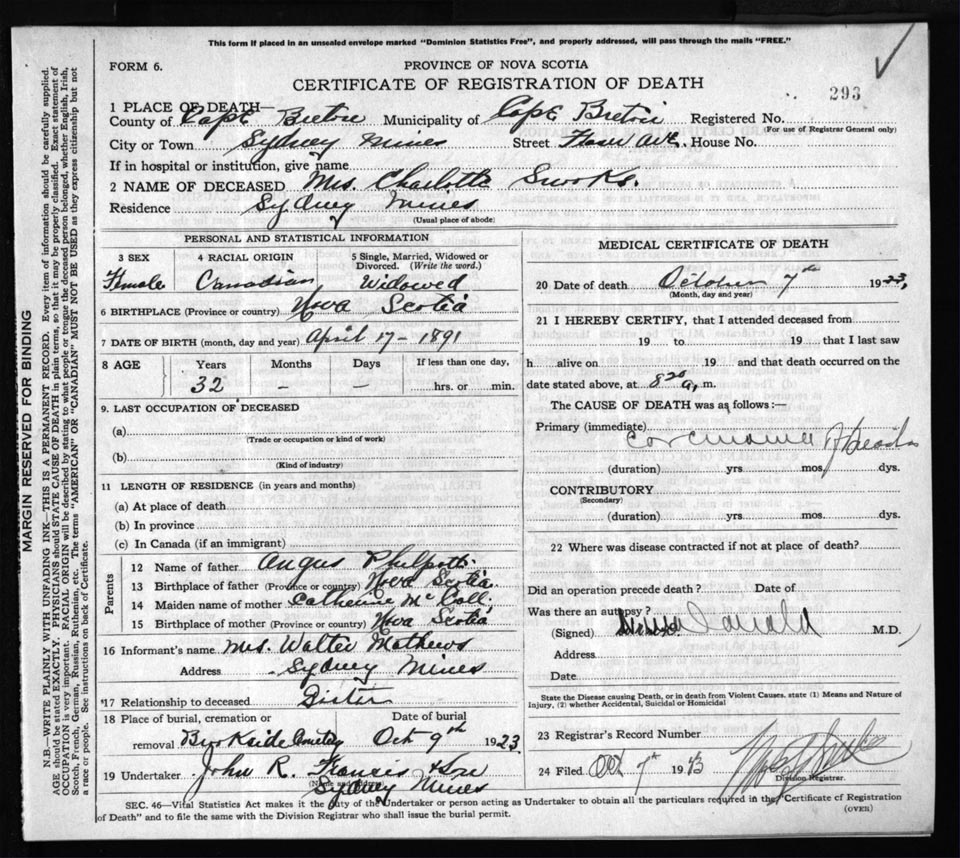 This form if placed in an unsealed envelope marked "Dominion Statistics Free", and properly addressed, will pass through the mails "FREE."
FORM 6.
PROVINCE OF NOVA SCOTIA
CERTIFICATE OF REGISTRATION OF DEATH
293
1 PLACE OF DEATH—
County of Cape Breton Municipality of Cape Breton Registered No.
(For use of Registrar General only)
City or Town Sydney Mines Street Ave. House No.
If in hospital or institution, give name
2 NAME OF DECEASED Mrs. Charlotte Snooks.
Residence Sydney Mines
(Usual place of abode)
PERSONAL AND STATISTICAL INFORMATION
3 SEX 4 RACIAL ORIGIN 5 Single, Married, Widowed or Divorced. (Write the word.)
Female Canadian Widowed
6 BIRTHPLACE (Province or country) Nova Scotia
7 DATE OF BIRTH (month, day and year) April 17 - 1891
8 AGE Years Months Days If less than one day,
32 - - hrs. or min.
9. LAST OCCUPATION OF DECEASED
(a)
(Trade or occupation or kind of work)
(b)
(Kind of industry)
11 LENGTH OF RESIDENCE (in years and months)
(a) At place of death
(b) In province
(c) In Canada (if an immigrant)
Parents
12 Name of father Angus Philpott
13 Birthplace of father (Province or country) Nova Scotia
14 Maiden name of mother Catherine McColl.
15 Birthplace of mother (Province or country) Nova Scotia
16 Informant's name Mrs. Walter Mathews
Address Sydney Mines
17 Relationship to deceased Sister
18 Place of burial, cremation or Date of burial
removal Brookside Cemetery Oct 9th 1923
19 Undertaker John R. Francis & Son
(Name and address)
Sydney Mines
MEDICAL CERTIFICATE OF DEATH
20 Date of death October 7th 1923,
(Month, day and year)
21 I HEREBY CERTIFY, that I attended deceased from
19 to 19 that I last saw
h alive on 19 and that death occurred on
date stated above, at 8 20 a, m.
The CAUSE OF DEATH was as follows:—
Primary (immediate)
Carcinoma of
(duration) yrs mos. dys.
CONTRIBUTORY
(Secondary)
(duration) yrs mos dys.
22 Where was disease contracted if not at place of death?
Did an operation precede death? Date of
Was there an autopsy?
(Signed) Donald M.D.
Address
Date
State the Disease causing Death, or in death from Violent Causes, state (1) Means and Nature of
Injury, (2) whether Accidental, Suicidal or Homicidal
23 Registrar's Record Number
24 Filed Oct 7th 1923
Division Registrar.
SEC. 46—Vital Statistics Act makes it the duty of the Undertaker or person acting as Undertaker to obtain all the particulars required in the "Certificate of Registration
of Death" and to file the same with the Division Registrar who shall issue the burial permit.
(OVER)
MARGIN RESERVED FOR BINDING
N.B.—WRITE PLAINLY WITH UNFADING INK—THIS IS A PERMANENT RECORD. Every item of information should be carefully supplied.
AGE should be stated EXACTLY. PHYSICIANS should STATE CAUSE OF DEATH in plain terms, so that it may be properly classified. Exact statement of
OCCUPATION is very important. RACIAL ORIGIN will be described by stating to what people or tongue the deceased person belonged, whether English, Irish,
Scotch, French, German, Russian, Ruthenian, etc. The terms "AMERICAN" or "CANADIAN" MUST NOT BE USED as they express citizenship but not
a race or people. See instructions on back of Certificate.